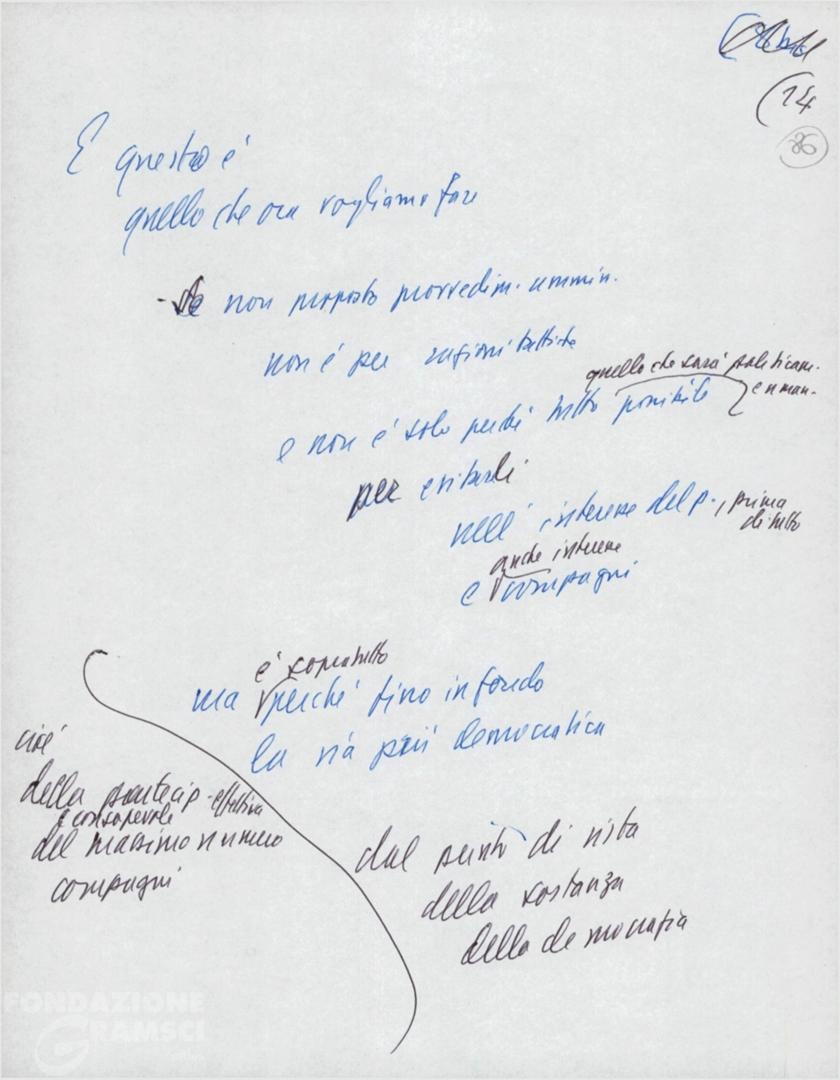 (14
36
E questo è
quello che ora vogliamo fare
- Se non proposto provvedim. ammin.
non è per ragioni tattiche
quello che sarà politicam.
e uman.
e non è solo perché tutto possibile
per evitarli
nell' interesse del p., prima
di tutto
anche interesse
e compagni
è sopratutto
ma perché fino in fondo
la via più democratica
cioè
della partecip. effettiva
e consapevole
del massimo numero
compagni
dal punto di vista
della sostanza
della democrazia
FONDAZIONE
GRAMSCI